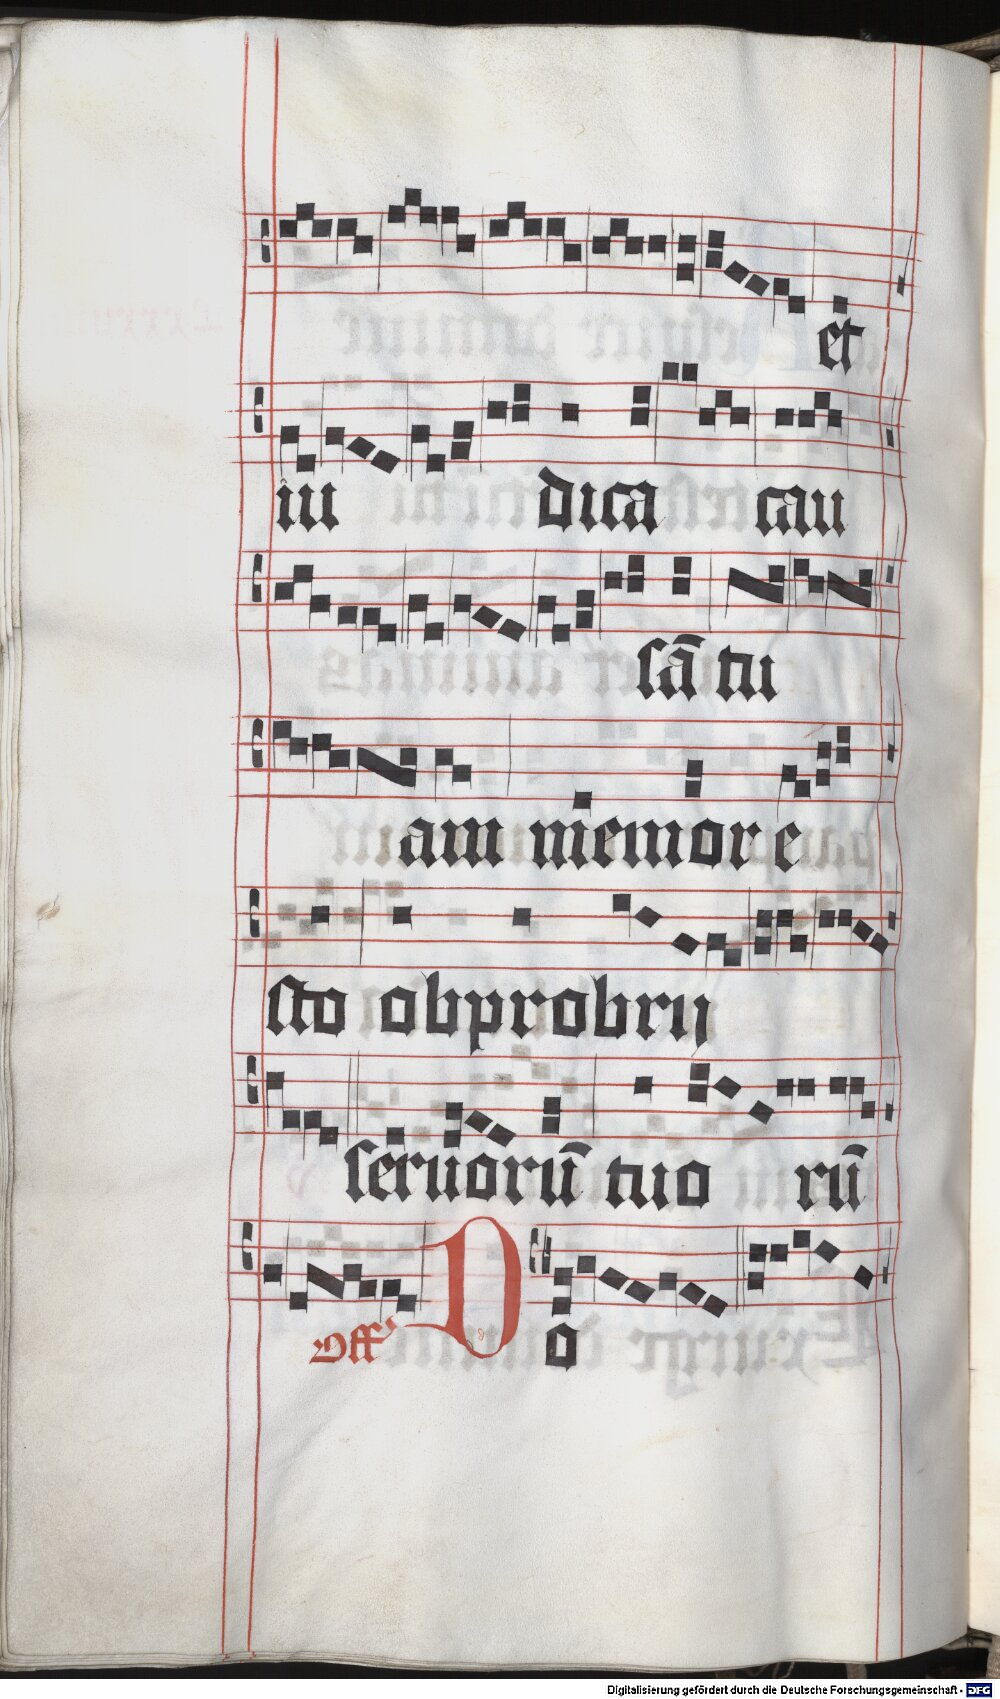 et
iu dica cau
sā tu
am memor e
sto obprobrij
seruorū tuo rū
Off D o
Digitalisierung gefördert durch die Deutsche Forschungsgemeinschaft - DFG